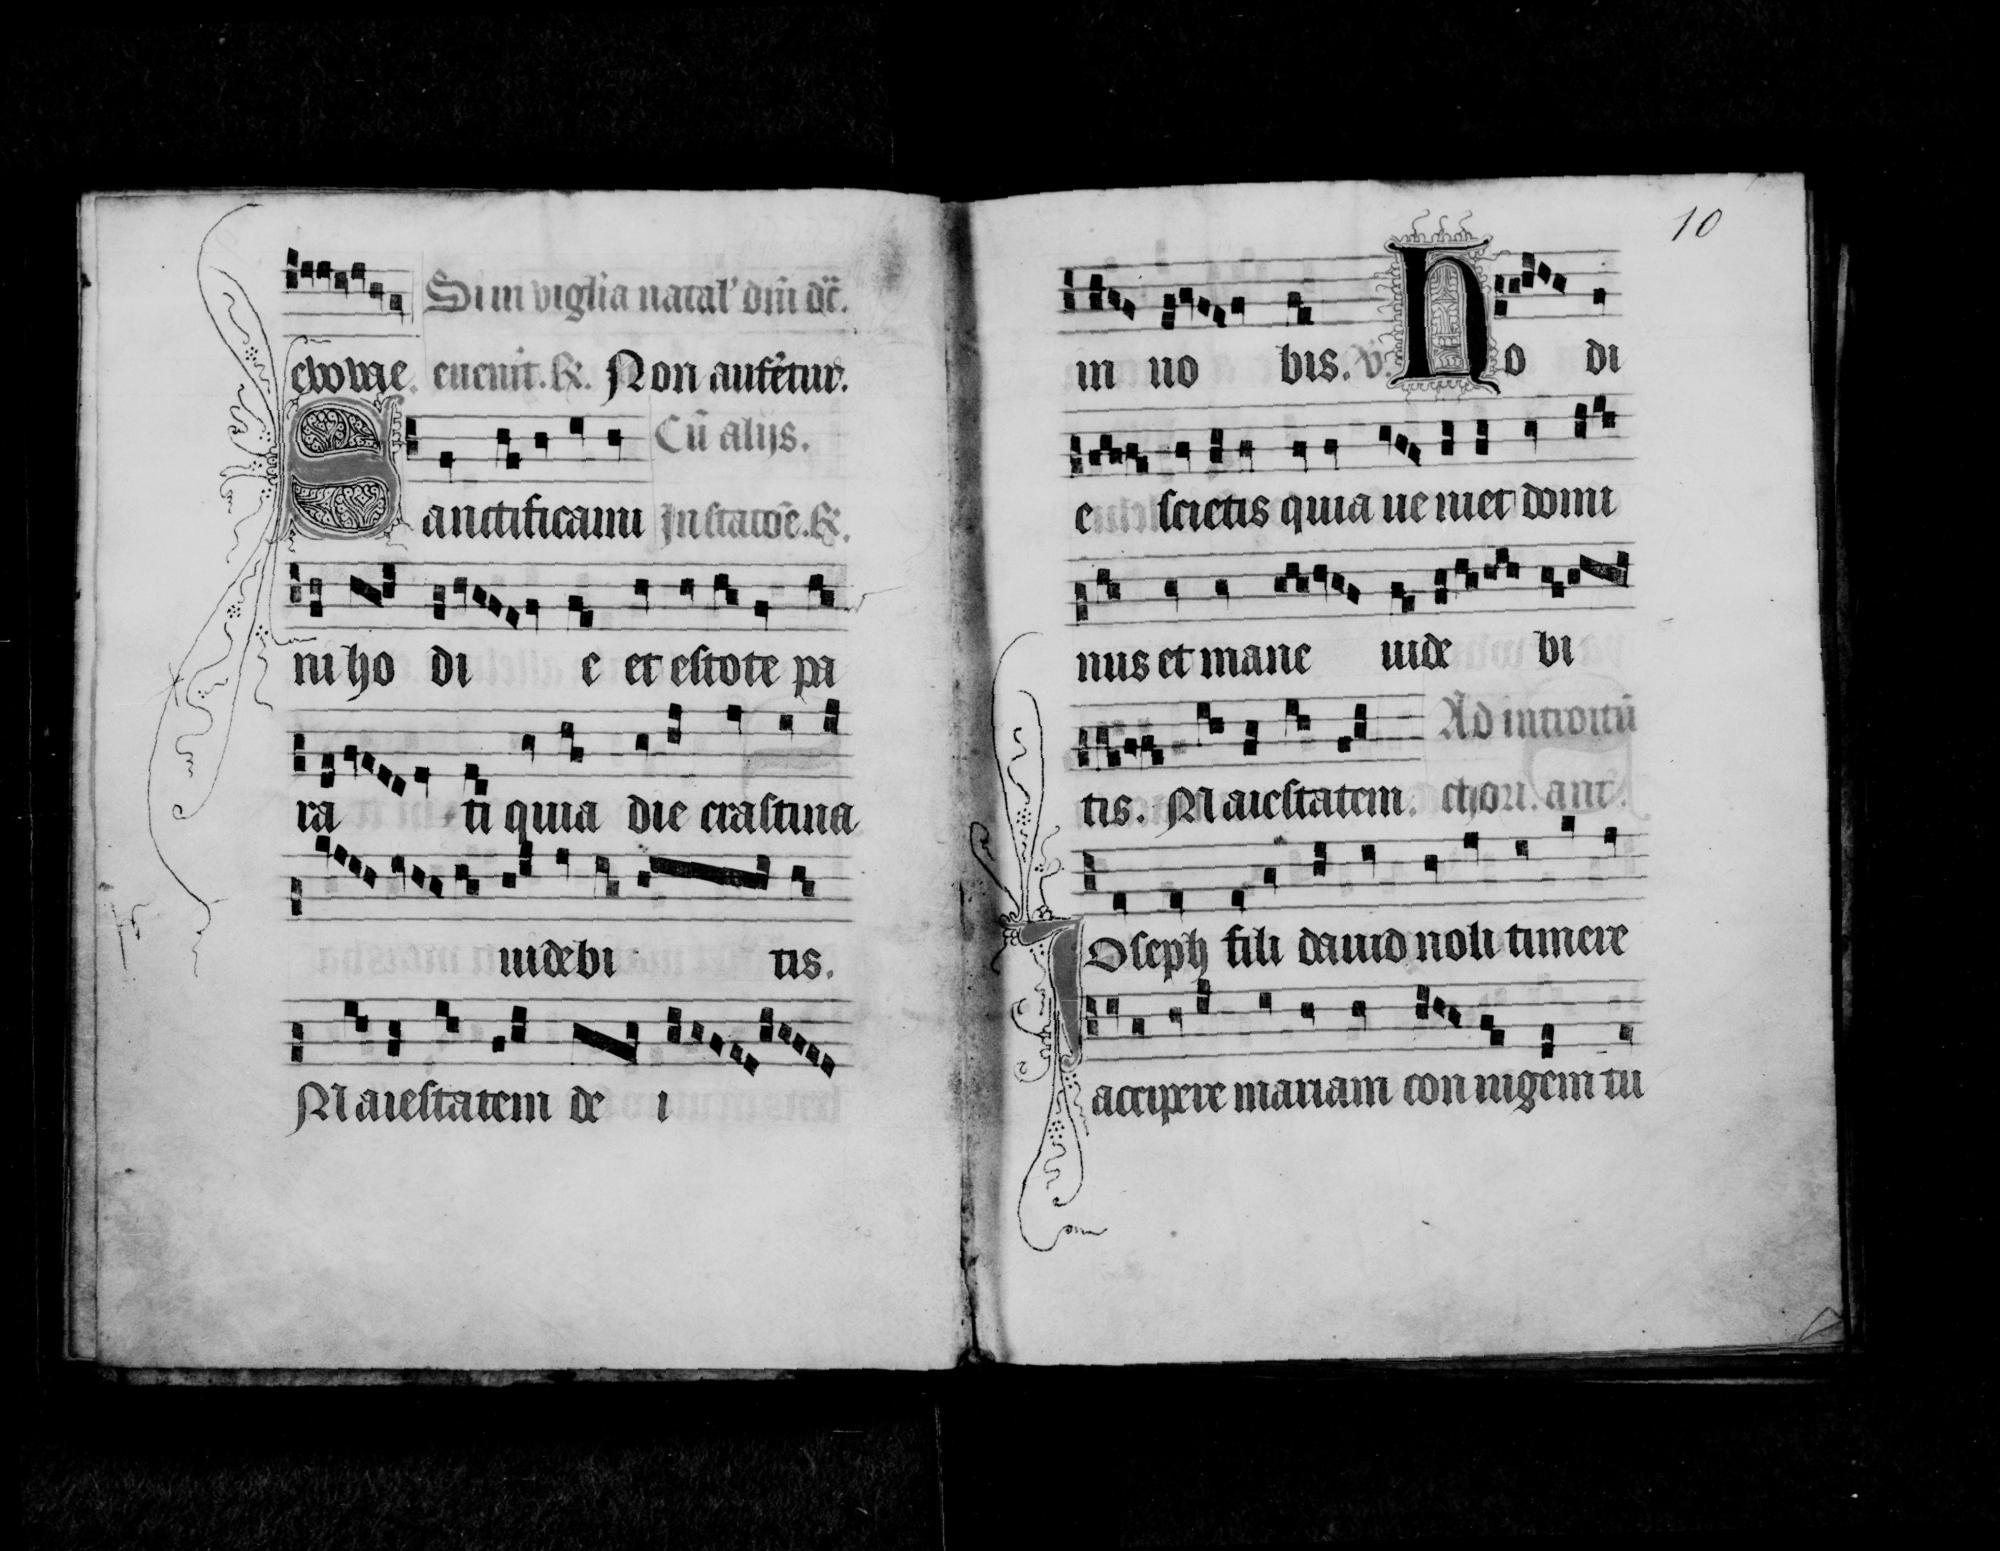 Si in vigl'ia natal' dm̄i dc̄.
evovae. euenit. R. Non aufētur.
Cū alijs.
Sanctificamini In statōe. R.
ni ho di e et estote pa
ra ti quia die crastina
uidebi tis.
Maiestatem de i
10
in no bis. v̄. Ho di
e scietis quia ue niet domi
nus et mane uide bi
Ad introitū
tis. Maiestatem. chori. ant.
Ioseph fili dauid noli timere
accipere mariam con iugem tu